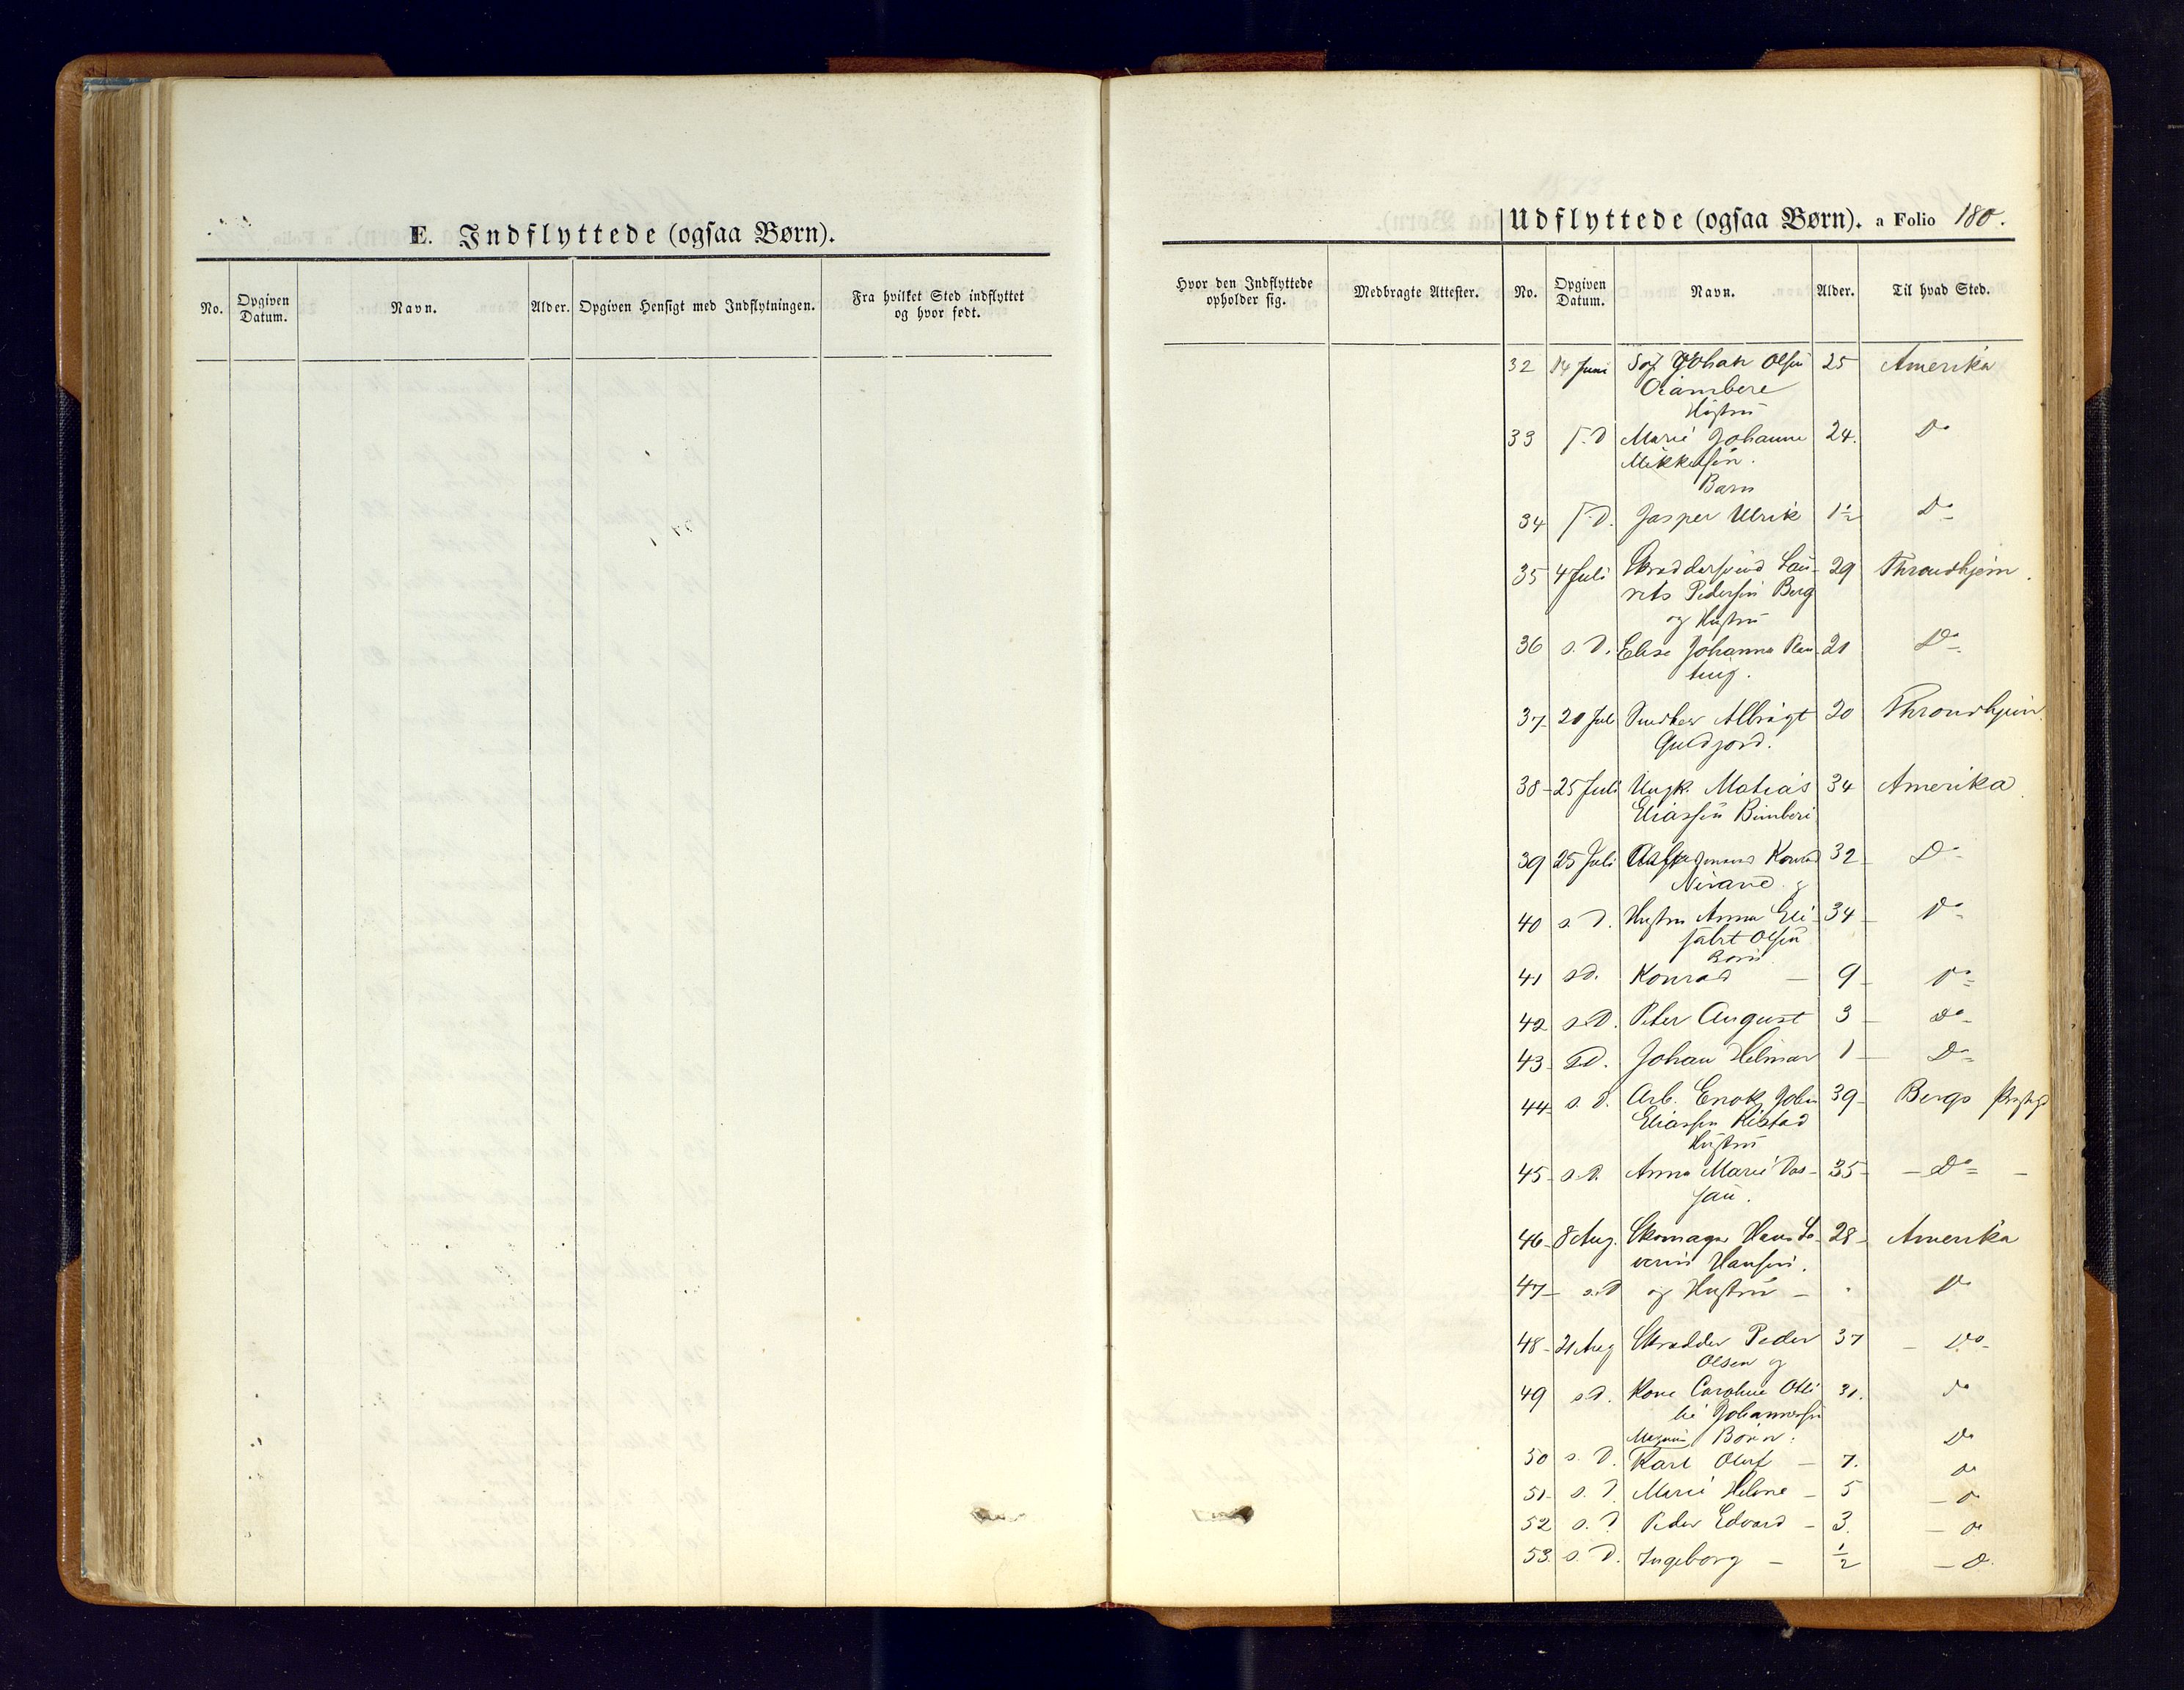 E. Indflyttede (ogsaa Børn).
No. Opgiven Datum. Navn. Alder. Opgiven Hensigt med Indflytningen. Fra hvilket Sted indflyttet og hvor født.
Udflyttede (ogsaa Børn). a Folio 180.
Hvor den Indflyttede opholder sig. Medbragte Attester. No. Opgiven Datum. Navn. Alder. Til hvad Sted.
32 14 Juni Johan Olsen 25 Amerika
Hustru
33 s. D Marie Johanne 24. Do
Mikkelsen.
Barn
34 s. D. Jasper Ulrik 1½ Do
35 4 Juli Skräddersvend Lau- 29 Throndhjem.
rits Pedersen Berg
og Hustru
36 s. D. Elise Johanna 21 Do
37 Smeder Albrigt 20 Throndhjem.
38 25 Juli Ungk. Matias 34 Amerika
Eliassen
39 25 Juli Konrad 32 Do
og
40 s. D. Hustru Anna Eli- 34 Do
sabet Olsen
Børn
41 s. D. Konrad — 9 Do
42 s. D. Peter August 3 Do
43 s. D. Johan Helmar 1 Do
44 s. D. Arb. Enok John 39 Bergs
Eliassen
Hustru
45 s. D. Anna Marie 35 Do
46 8 Aug. Skomager Hans Se- 28 Amerika
verin Hansen.
47 s. D og Hustru — Do
48 21 Aug Skrädder Peder 37 Do
Olsen og
49 s. D. Kone Caroline Otti- 31. Do
lie Johannessen
Børn. Do
50 s. D. Karl Oluf — 7. Do
51 s. D. Marie Helene — 5 D
52 s. D Peder Edvard — 3. Do
53. s. D. Ingeborg — ½ D.